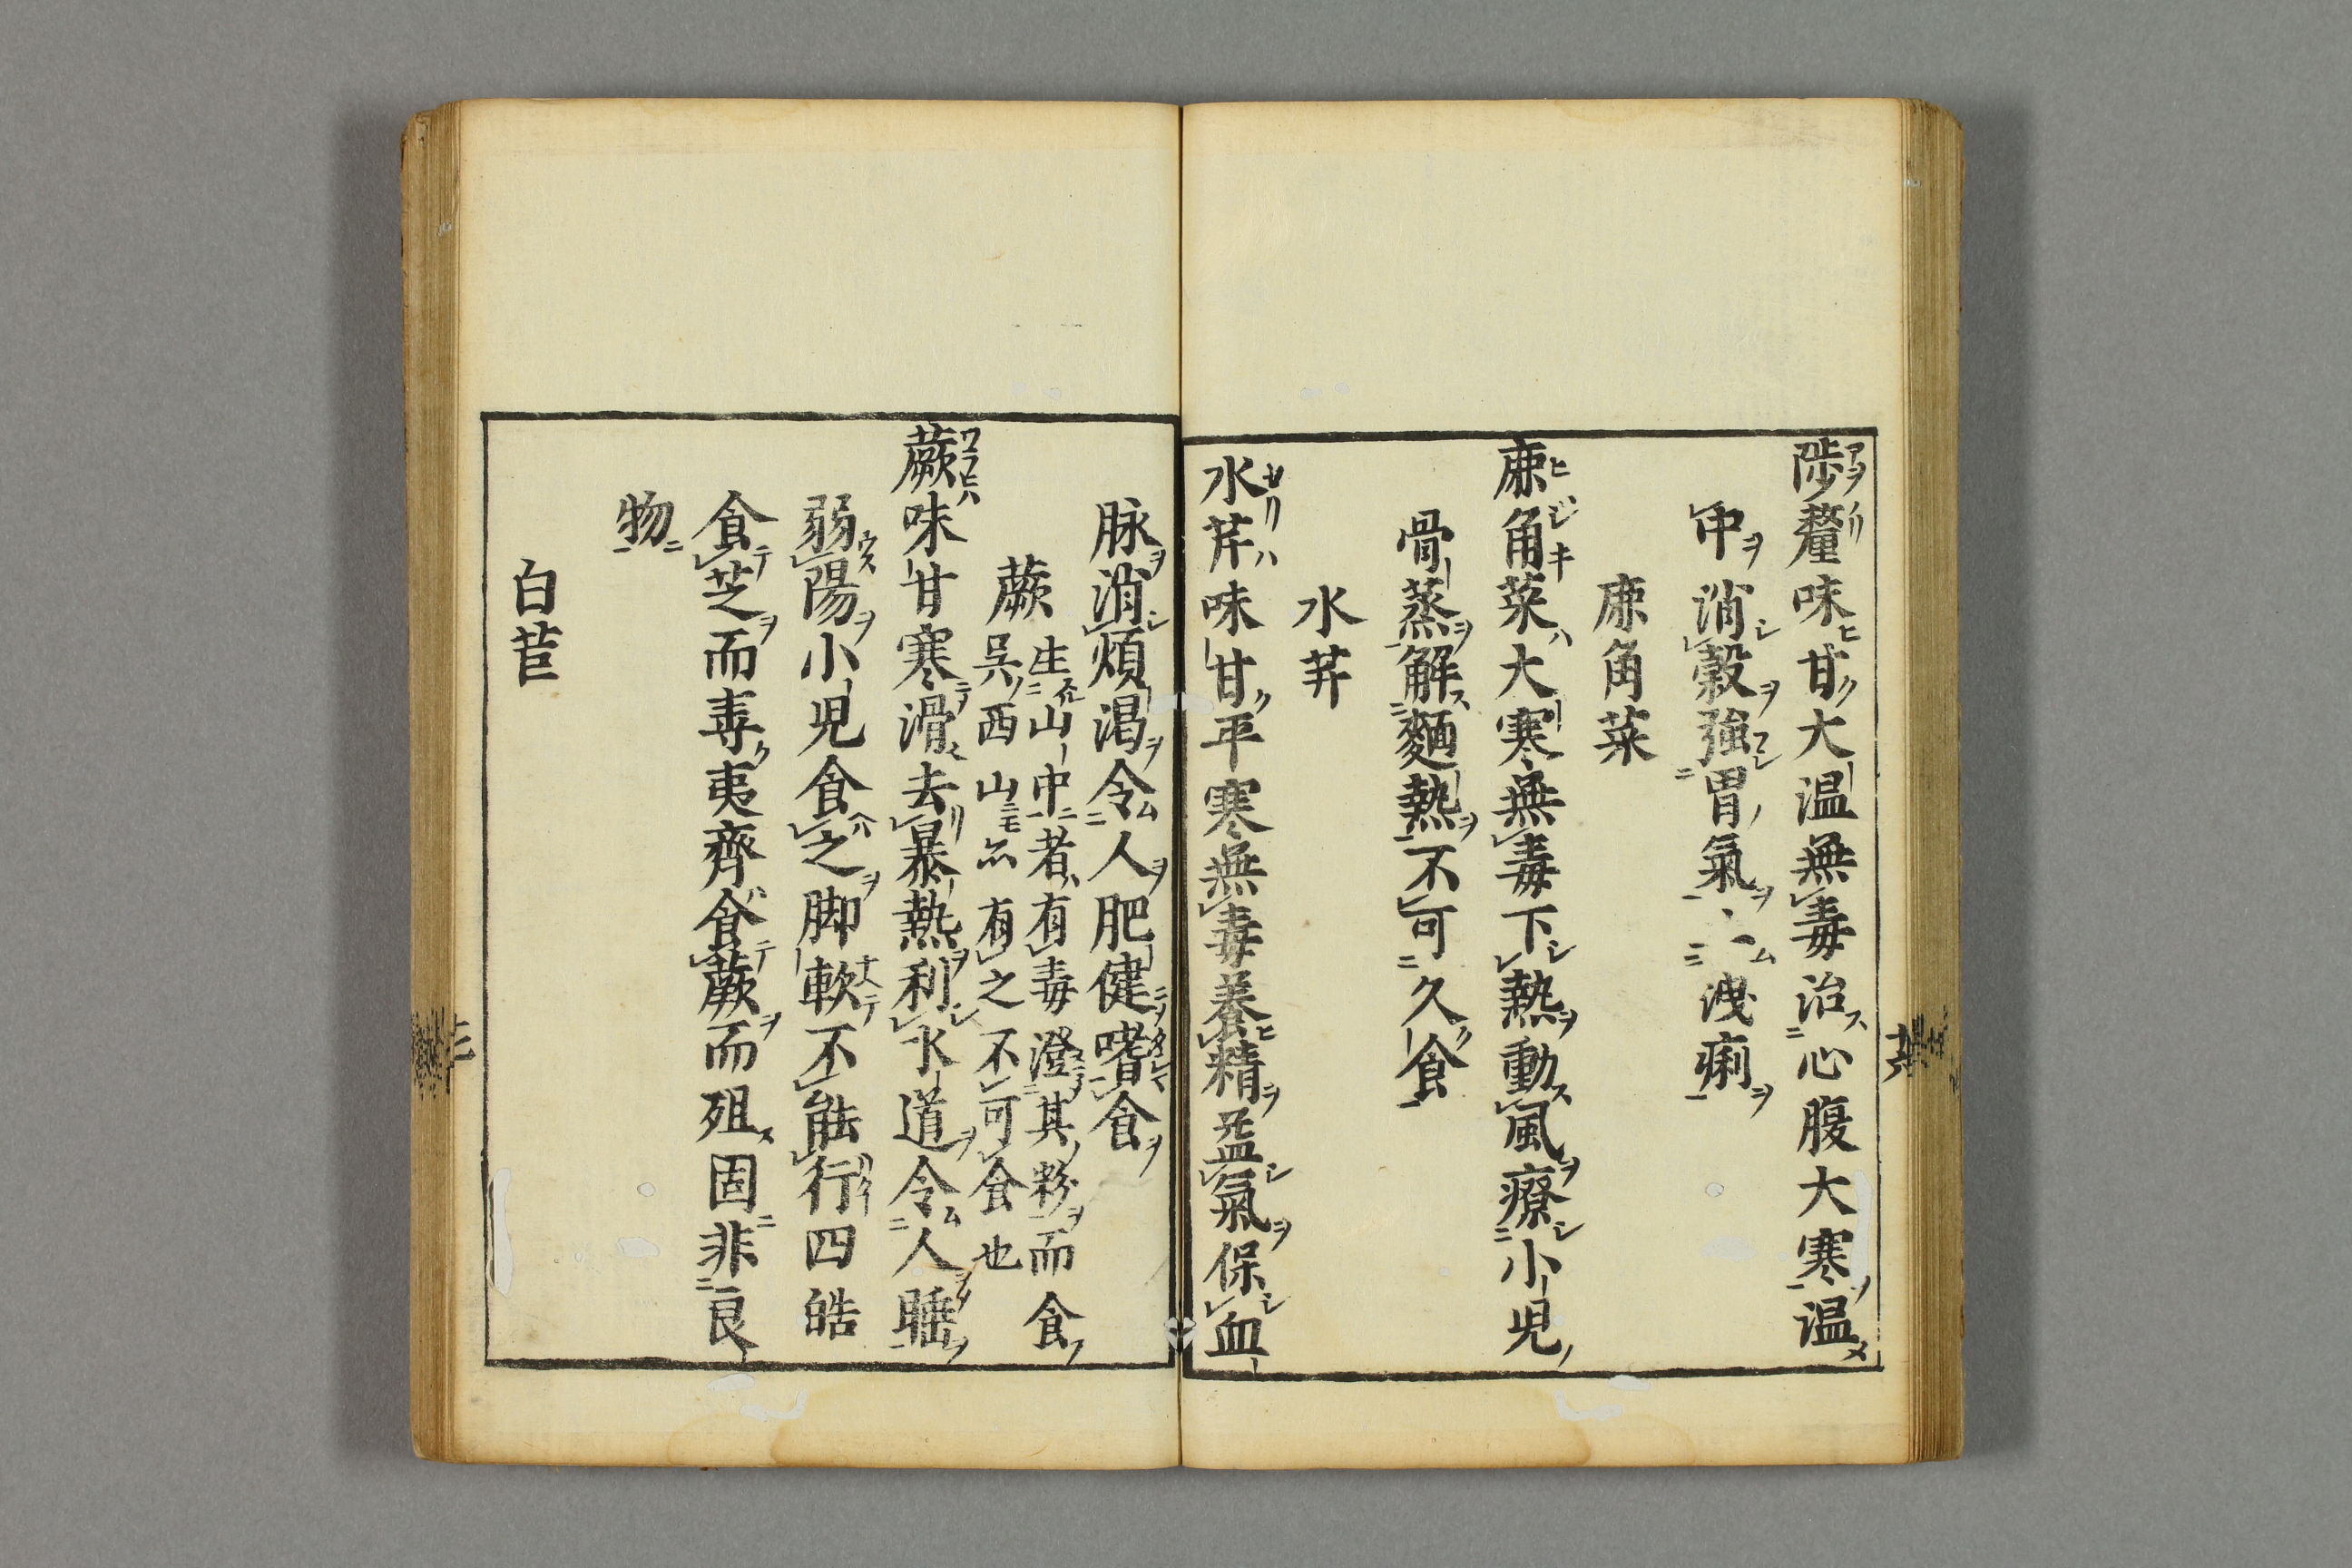 陟釐味甘大温無毒治心腹大寒温
中消穀強胃氣止洩痢
鹿角菜
鹿角菜大寒無毒下熱動風療小児
骨蒸解麵熱不可久食
水芹
水芹味甘平寒無毒養精益氣保血
脉消煩渇令人肥健嗜食
蕨
生山中者有毒澄其粉而食
呉西山亦有之不可食也
蕨味甘寒滑去暴熱利水道令人睡
弱陽小児食之脚軟不能行四皓
食芝而壽夷齊食蕨而殂固非良
物
白苣